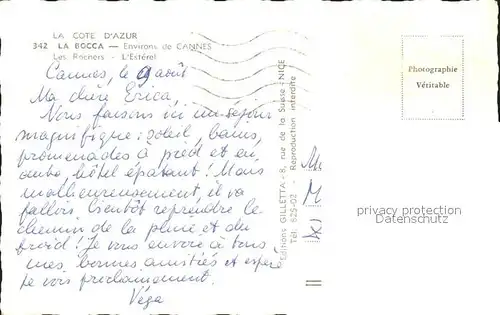 LA COTE D'AZUR
342 LA BOCCA — Environs de CANNES
Les Rochers - L'Estérel
Cannes, le 9 août
Ma chère Erica,
Nous faisons ici un séjour
magnifique: soleil, bains,
promenades à pied et en
auto, hôtel épatant! Mais
malheureusement il va
falloir bientôt reprendre le
chemin de la pluie et du
froid! Je vous envoie à tous
mes bonnes amitiés et espère
te voir prochainement.
Véga
Editions GILLETTA - 8, rue de la Suisse - NICE
Tél. 825-02 - Reproduction interdite
Photographie
Véritable
M
privacy protection
Datenschutz